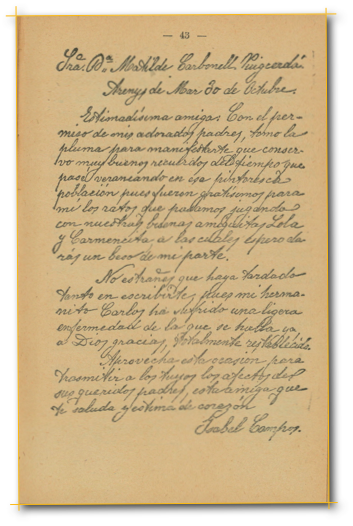 — 43 —
Sra. Da. Matilde Carbonell. Puigcerdá.
Arenys de Mar 30 de Octubre.
Estimadísima amiga: Con el per-
miso de mis adorados padres, tomo la
pluma para manifestarte que conser-
vo muy buenos recuerdos del tiempo que
pasé veraneando en esa pintoresca
población pues fueron gratísimos para
mí los ratos que pasamos jugando
con nuestras buenas amiguitas Lola
y Carmencita, a las cuales espero da-
rás un beso de mi parte.
No estrañes que haya tardado
tanto en escribirte, pues mi herma-
nito Carlos há sufrido una ligera
enfermedad de la que se halla ya,
a Dios gracias, totalmente restablecido.
Aprovecha esta ocasión para
trasmitir a los tuyos los afectos de
sus queridos padres, esta amiga que
te saluda y estima de corazón
Isabel Campos.